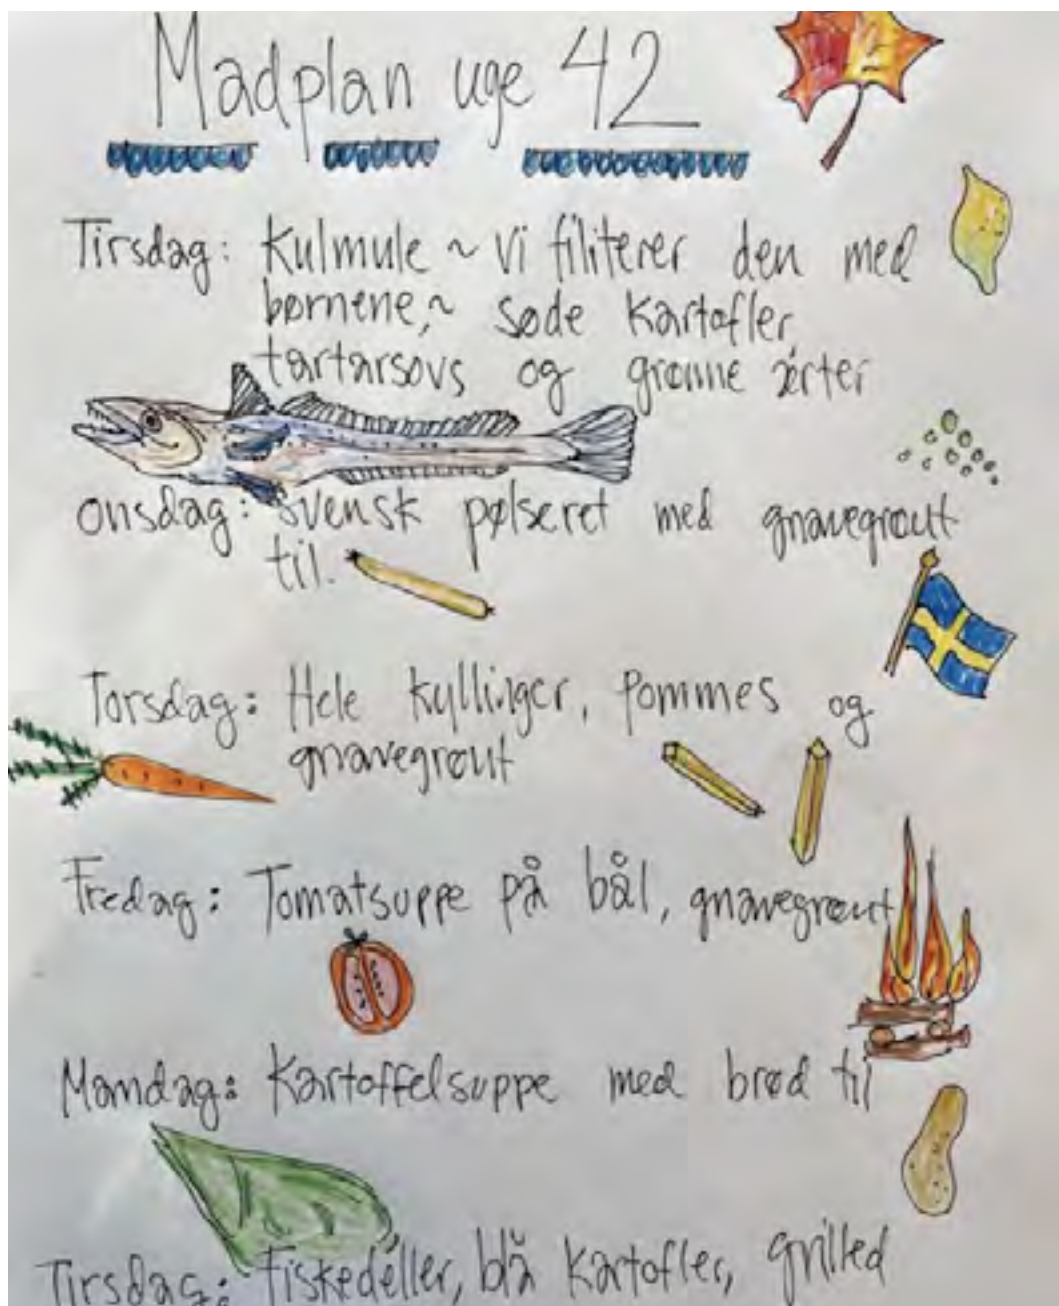 Madplan uge 42
Tirsdag: Kulmule ~ vi filiterer den med
børnene,~ søde kartofler,
tartarsovs og grønne ærter
Onsdag: Svensk pølseret med gnavegrønt
til.
Torsdag: Hele kyllinger, pommes og
gnavegrønt
Fredag: Tomatsuppe på bål, gnavegrønt
Mandag: Kartoffelsuppe med brød til
Tirsdag: Fiskedeller, blå kartofler, grilled